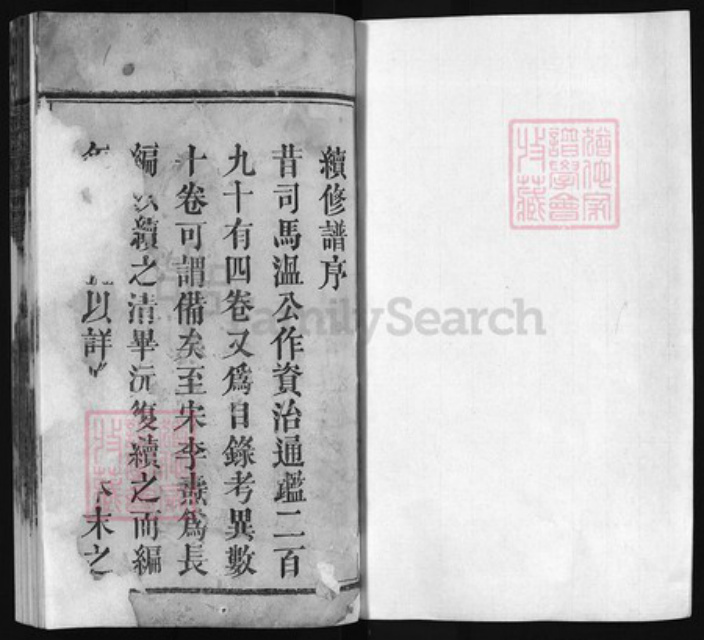 續修譜序
昔司馬溫公作資治通鑑二百
九十有四卷又爲目錄考異數
十卷可謂備矣至宋李燾爲長
編以續之清畢沅復續之而編
年 以詳 末之
猶他家
譜學會
特藏
FamilySearch